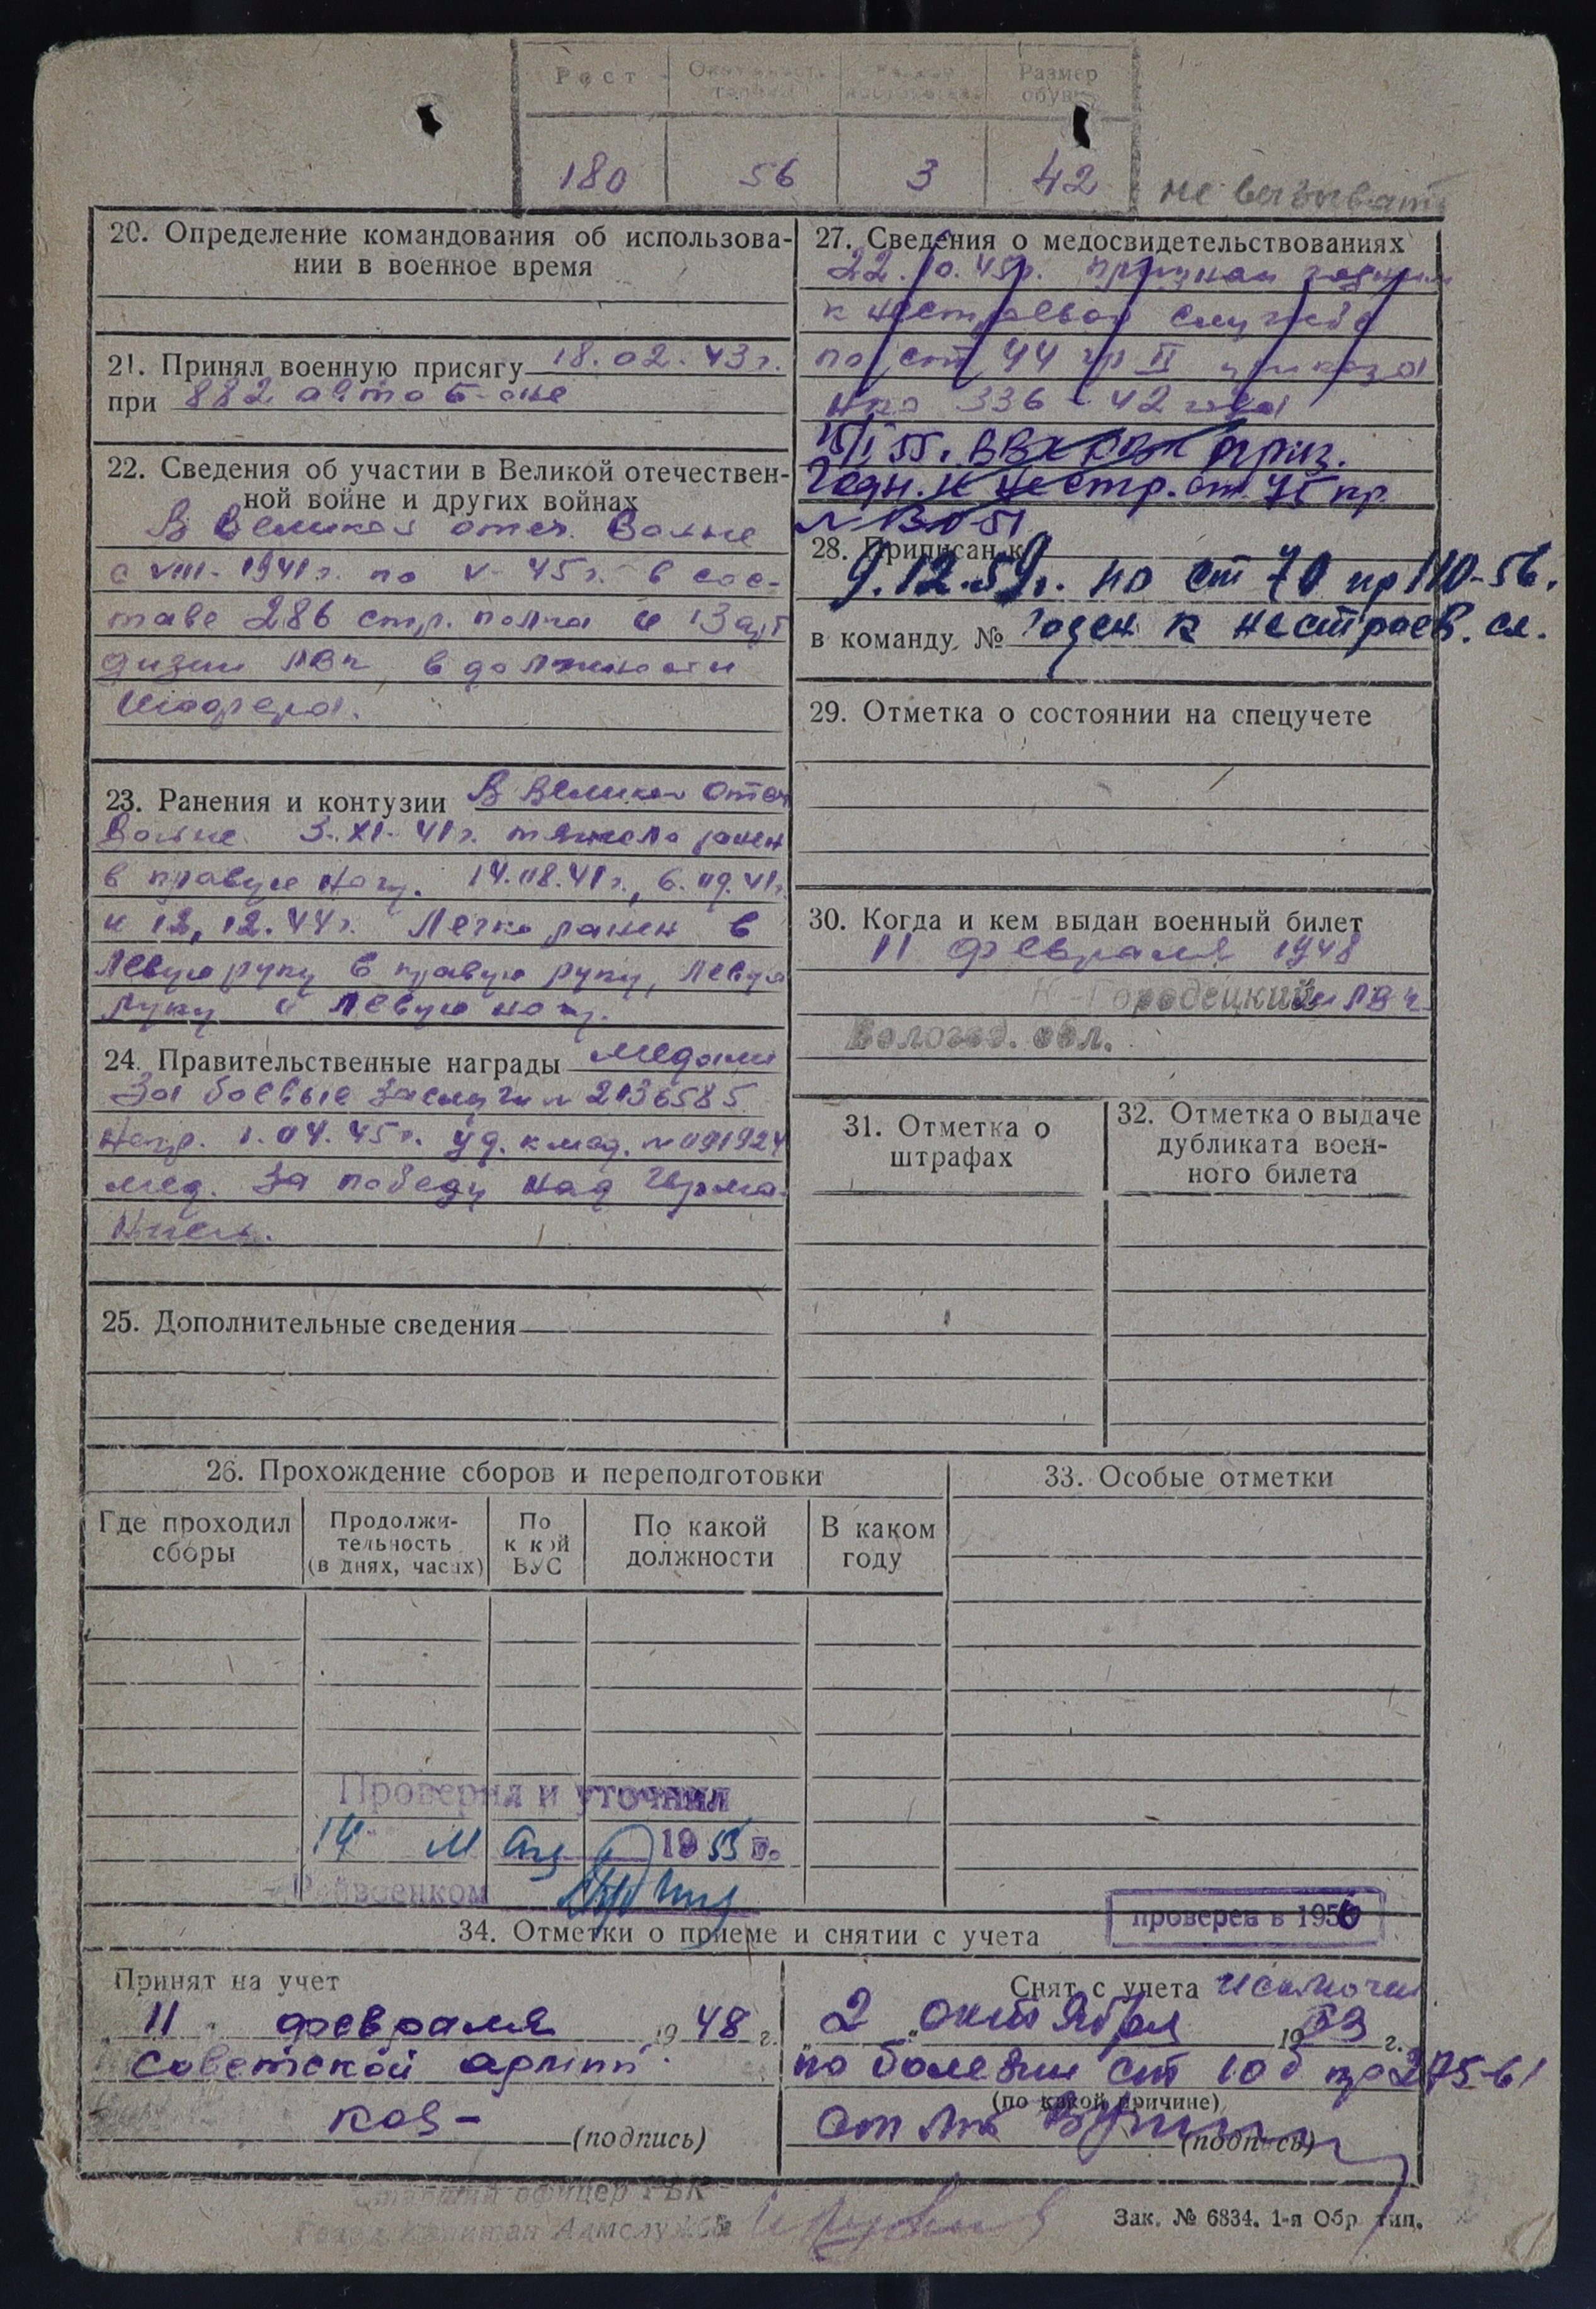 Рост
Размер
обуви
180 56 3 42
не вызывать
20. Определение командования об использова-
нии в военное время
21. Принял военную присягу 18.02.43 г.
при 882 авто б-оне
22. Сведения об участии в Великой отечествен-
ной войне и других войнах
В Великой отеч. Войне
с VIII-1941 г. по V-45 г. в сос-
таве 286 стр. полка и 13
в должности
шофера.
23. Ранения и контузии В Великой Отеч
Войне 3.XI-41 г. тяжело ранен
в правую ногу. 14.08.41 г., 6.09.41 г.
и 12.12.44 г. Легко ранен в
левую руку в правую руку, левую
руку и левую ногу.
24. Правительственные награды медали
За боевые заслуги № 2136585
Нагр. 1.04.45 г. уд. к мед. № 091924
мед. За победу над Герма-
нией.
25. Дополнительные сведения
27. Сведения о медосвидетельствованиях
22.10.45 г. признан годным
к нестроевой службе
по ст 44 гр II приказа
НКО 336-42 года
15/I 55. призн.
Годн. к нестр. ст. 75 пр.
28. Приписан к
9.12.59 г. по ст 70 пр 110-56.
в команду № Годен к нестроев. сл.
29. Отметка о состоянии на спецучете
30. Когда и кем выдан военный билет
11 февраля 1948
К-Городецким РВК
Вологод. обл.
31. Отметка о
штрафах
32. Отметка о выдаче
дубликата воен-
ного билета
26. Прохождение сборов и переподготовки
Где проходил
сборы
Продолжи-
тельность
(в днях, часах)
По
какой
ВУС
По какой
должности
В каком
году
33. Особые отметки
Проверил и уточнил
14 1953 г.
Райвоенком
проверен в 1956
34. Отметки о приеме и снятии с учета
Принят на учет
11 февраля 1948 г.
Советской армии
(подпись)
Снят с учета исключен
2 октября 1963 г.
по болезни ст 10б пр 275-61
(по какой причине)
(подпись)
Старший офицер РВК
Капитан Адмслужбы
Зак. № 6834. 1-я Обр. тип.